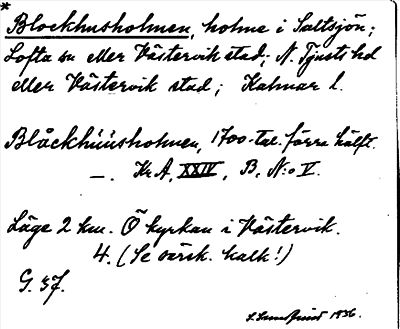 *
Blockhusholmen, holme i Saltsjön;
Lofta sn eller Västervik stad; N. Tjusts hd
eller Västervik stad; Kalmar l.
Blåckhüüsholmen, 1700-tal. förra hälft.
—. Kr A, XXIV, B, N:o V.
Läge 2 km. Ö kyrkan i Västervik.
4. (Se särsk. kalk!)
G. 57.
1936.